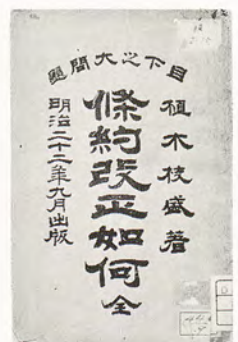 目下之大問題
植木枝盛著
條約改正如何 全
明治二十二年九月出版